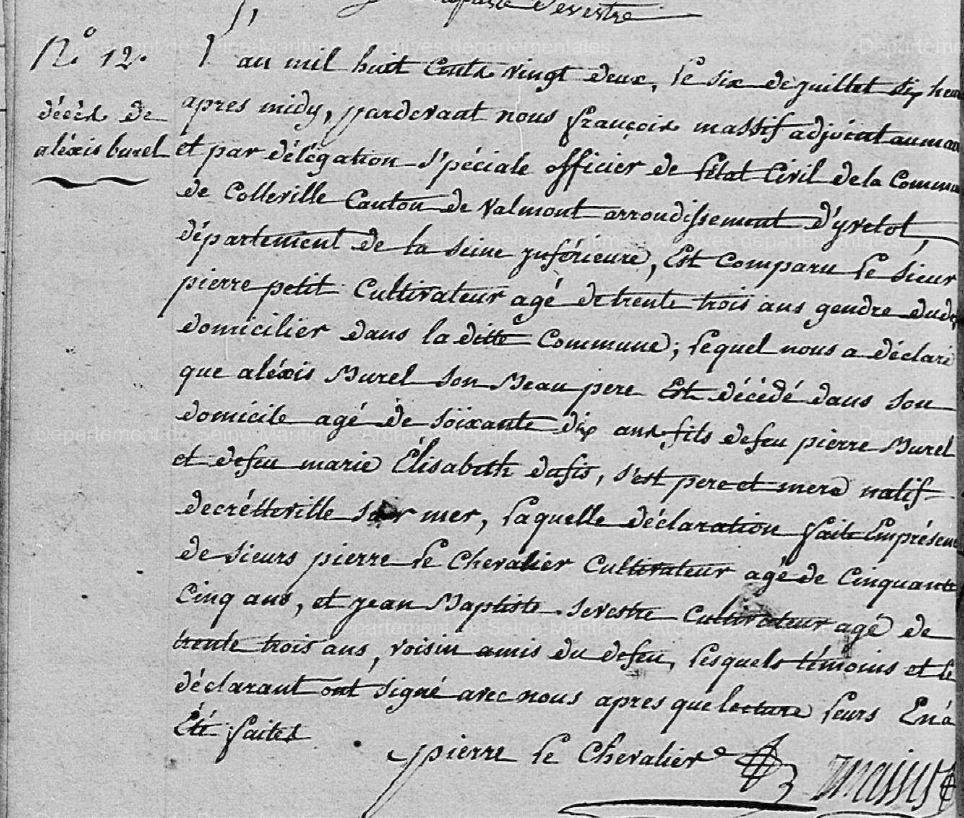 Baptiste Sevestre
N.° 12.
décès de
aléxis burel
L'an mil huit cents vingt deux, le six de juillet six heu
apres midy, pardevant nous françois massif adjoint au ma
et par délégation spéciale officier de l'état Civil de la Commu
de Colleville Canton de Valmont arrondissement d'yvetot,
département de la Seine ynférieure, Est Comparu le Sieur
pierre petit Cultivateur agé de trente trois ans gendre dud
domicilier dans la ditte Commune; lequel nous a déclaré
que aléxis Burel Son Beau pere Est décédé dans Son
domicile agé de soixante dix ans fils defeu pierre Burel
et defeu marie Élisabeth dufis, s'est pere et mere natif
decrétteville Sur mer, laquelle déclaration faite Emprésen
de Sieurs pierre le Chevalier Cultivateur agé de Cinquante
Cinq ans, et jean Baptiste Sevestre Cultivateur agé de
trente trois ans, voisin amis du defeu, lesquels témoins et le
déclarant ont signé avec nous apres que lecture leurs En a
Été faites
pierre le Chevalier massif